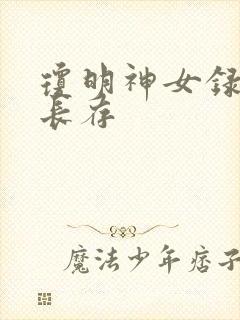 瓊明神女録
長存
魔法少年痞子